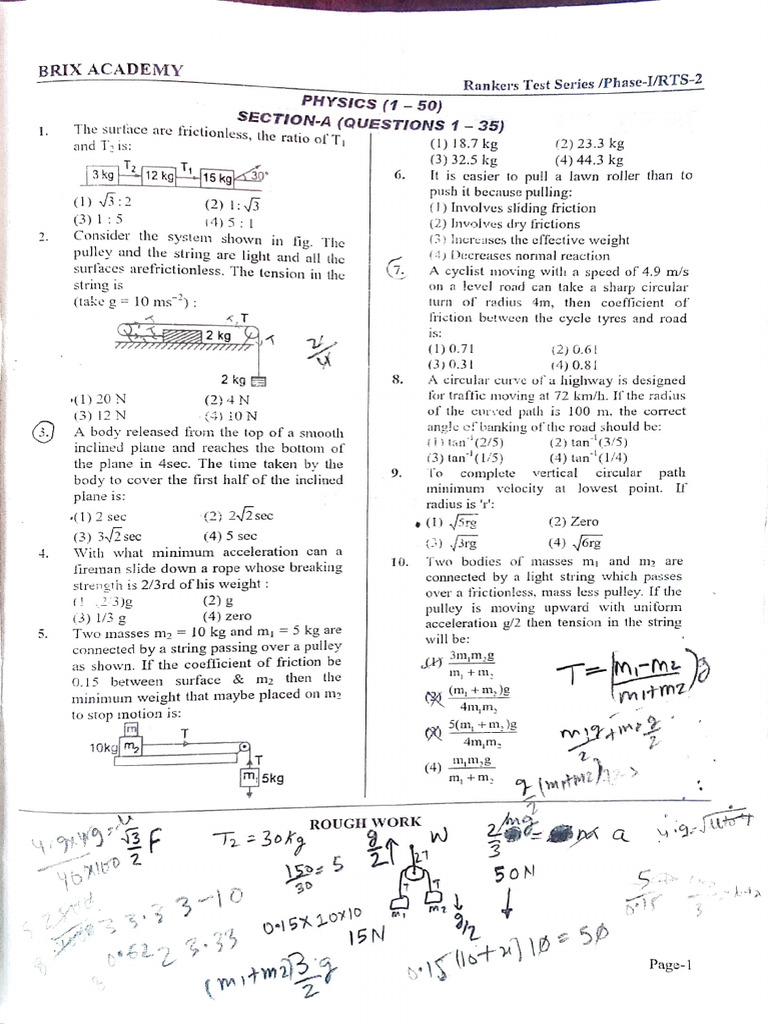 BRIX ACADEMY
Rankers Test Series /Phase-I/RTS-2
PHYSICS (1 – 50)
SECTION-A (QUESTIONS 1 – 35)
1. The surface are frictionless, the ratio of T₁
and T₂ is:
3 kg T₂ 12 kg T₁ 15 kg 30°
(1) √3 : 2 (2) 1: √3
(3) 1 : 5 (4) 5 : 1
2. Consider the system shown in fig. The
pulley and the string are light and all the
surfaces arefrictionless. The tension in the
string is
(take g = 10 ms⁻²) :
T
2 kg
T
2/4
2 kg
(1) 20 N (2) 4 N
(3) 12 N (4) 10 N
3. A body released from the top of a smooth
inclined plane and reaches the bottom of
the plane in 4sec. The time taken by the
body to cover the first half of the inclined
plane is:
(1) 2 sec (2) 2√2 sec
(3) 3√2 sec (4) 5 sec
4. With what minimum acceleration can a
fireman slide down a rope whose breaking
strength is 2/3rd of his weight :
(1 2/3)g (2) g
(3) 1/3 g (4) zero
5. Two masses m₂ = 10 kg and m₁ = 5 kg are
connected by a string passing over a pulley
as shown. If the coefficient of friction be
0.15 between surface & m₂ then the
minimum weight that maybe placed on m₂
to stop motion is:
m
10kg m₂ T
T
m₁ 5kg
(1) 18.7 kg (2) 23.3 kg
(3) 32.5 kg (4) 44.3 kg
6. It is easier to pull a lawn roller than to
push it because pulling:
(1) Involves sliding friction
(2) Involves dry frictions
(3) Increases the effective weight
(4) Decreases normal reaction
7. A cyclist moving with a speed of 4.9 m/s
on a level road can take a sharp circular
turn of radius 4m, then coefficient of
friction between the cycle tyres and road
is:
(1) 0.71 (2) 0.61
(3) 0.31 (4) 0.81
8. A circular curve of a highway is designed
for traffic moving at 72 km/h. If the radius
of the curved path is 100 m, the correct
angle of banking of the road should be:
(1) tan⁻¹(2/5) (2) tan⁻¹(3/5)
(3) tan⁻¹(1/5) (4) tan⁻¹(1/4)
9. To complete vertical circular path
minimum velocity at lowest point. If
radius is 'r':
(1) √5rg (2) Zero
(3) √3rg (4) √6rg
10. Two bodies of masses m₁ and m₂ are
connected by a light string which passes
over a frictionless, mass less pulley. If the
pulley is moving upward with uniform
acceleration g/2 then tension in the string
will be:
(1) 3m₁m₂g / m₁ + m₂
(2) (m₁ + m₂)g / 4m₁m₂
(3) 5(m₁ + m₂)g / 4m₁m₂
(4) m₁m₂g / m₁ + m₂
T = (m1-m2 / m1+m2)g
m1g/2 + m2g/2
g/2 (m1+m2)
ROUGH WORK
√3/2 F
T2 = 30kg
150/30 = 5
g/2
2T
T T
m₁ m₂
g/2
W
2/3 mg = a
50N
0.15X10X10
15N
0.15(10+x)10 = 50
(m1+m2)3/2 g
33.33-10
23.33
0.622
Page-1